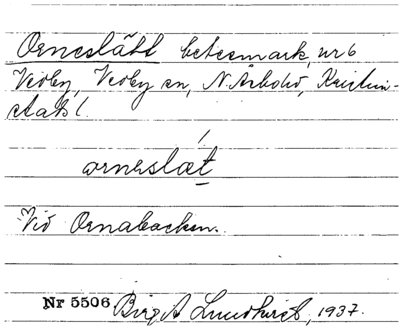 Orneslätt betesmark, nr 6
Vedby, Vedby sn, N. Åsbohd, Kristian-
stads l.
ornəslæt
Vid Ornabacken.
Nr 5506 Birgit Lundkvist, 1937.